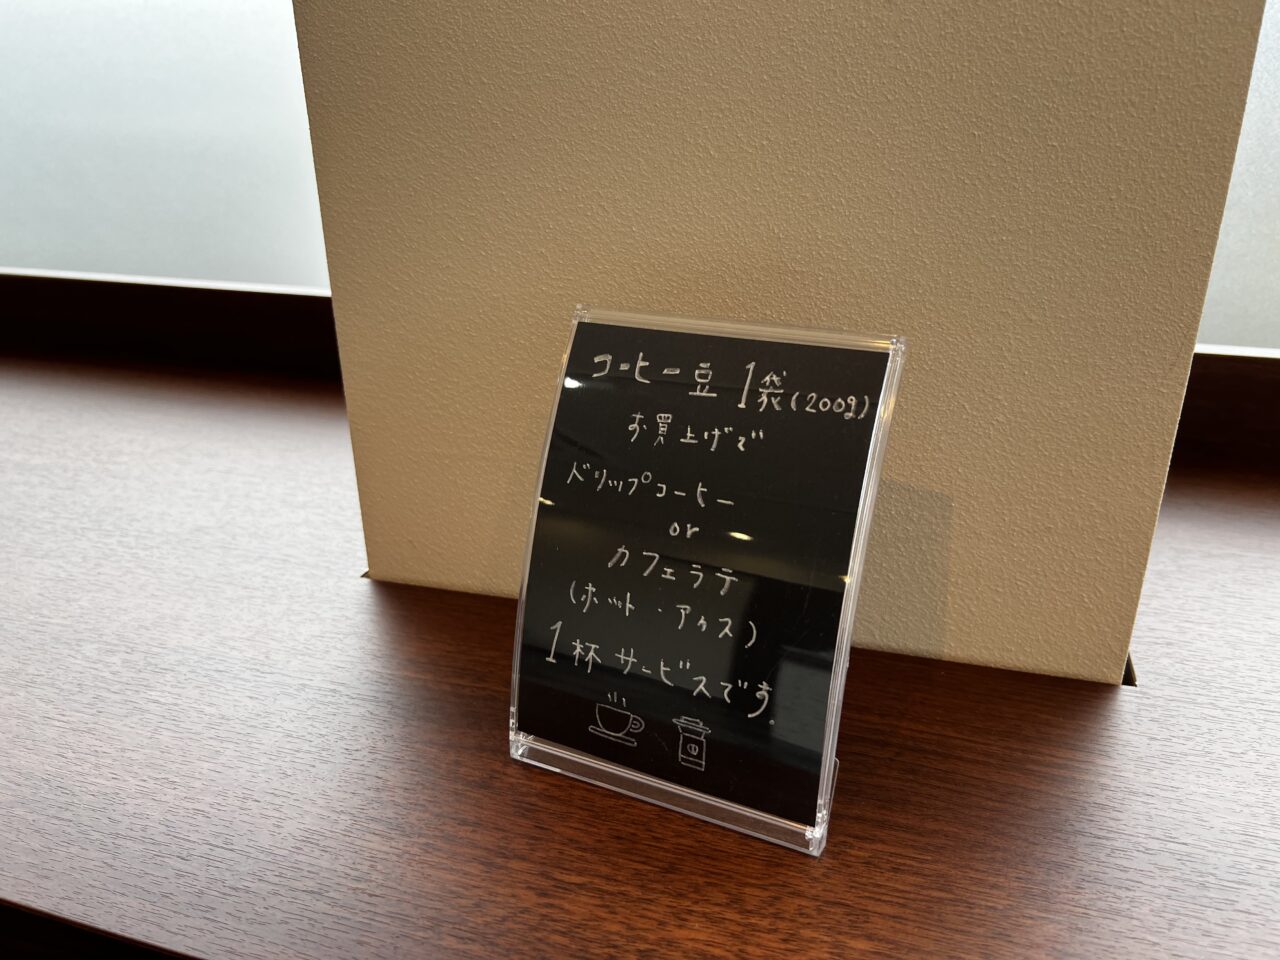 コーヒー豆 1袋(200g)
お買上げで
ドリップコーヒー
or
カフェラテ
(ホット・アイス)
1杯サービスです.